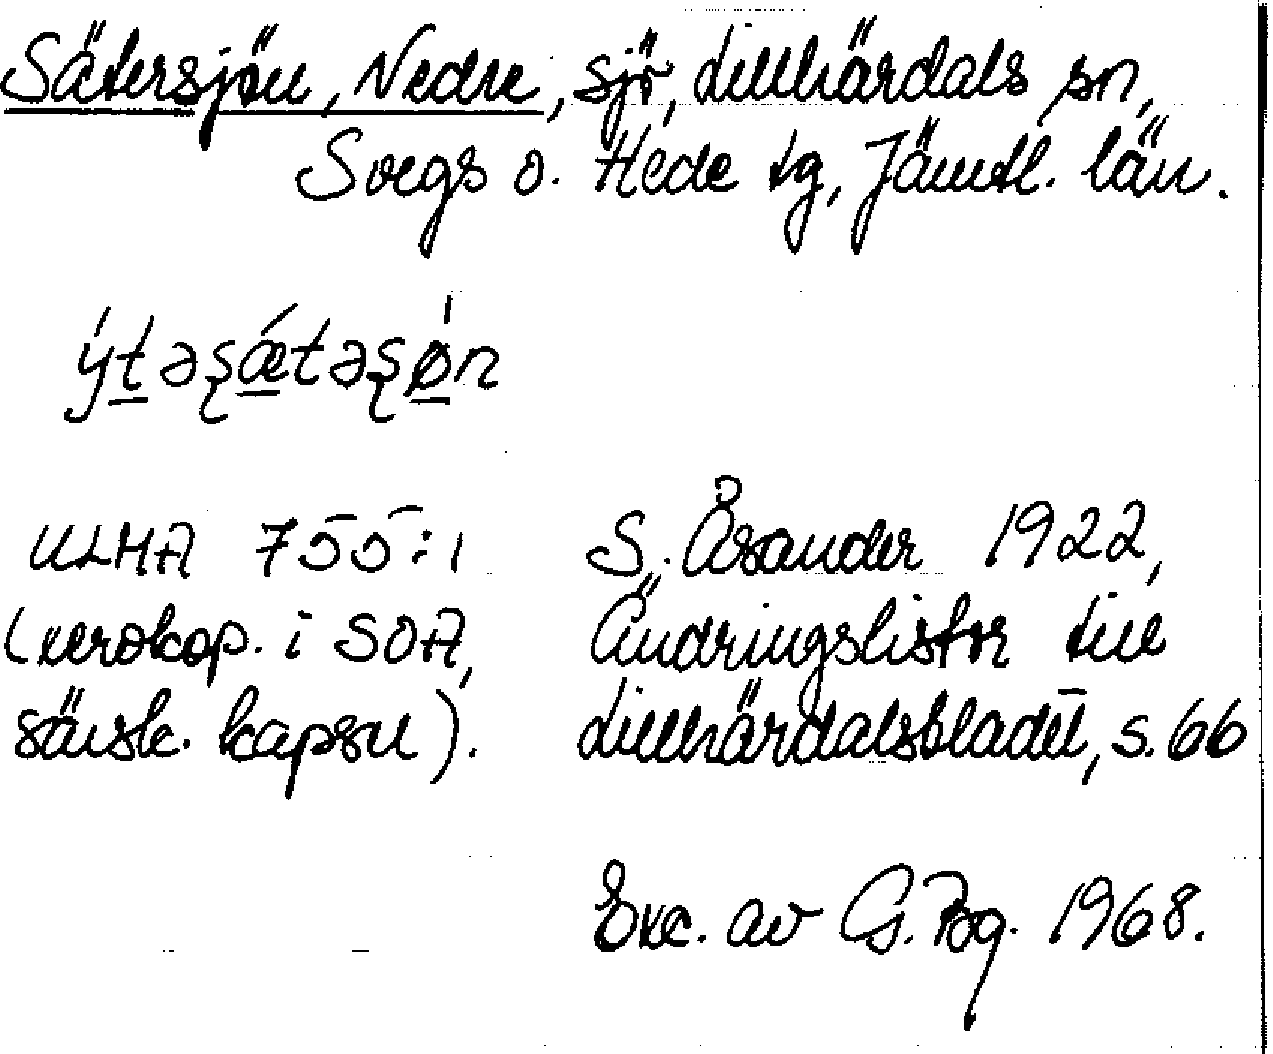 Sätersjön, Nedre, sjö, Lillhärdals sn,
Svegs o. Hede tg, Jämtl. län.
ýtəşǽtəşǿn
ULMA 755:1
(xerokop. i SOA,
särsk. kapsel).
S. Åsander 1922,
Ändringslistor till
Lillhärdalsbladet, s. 66
Exc. av G. Bg. 1968.